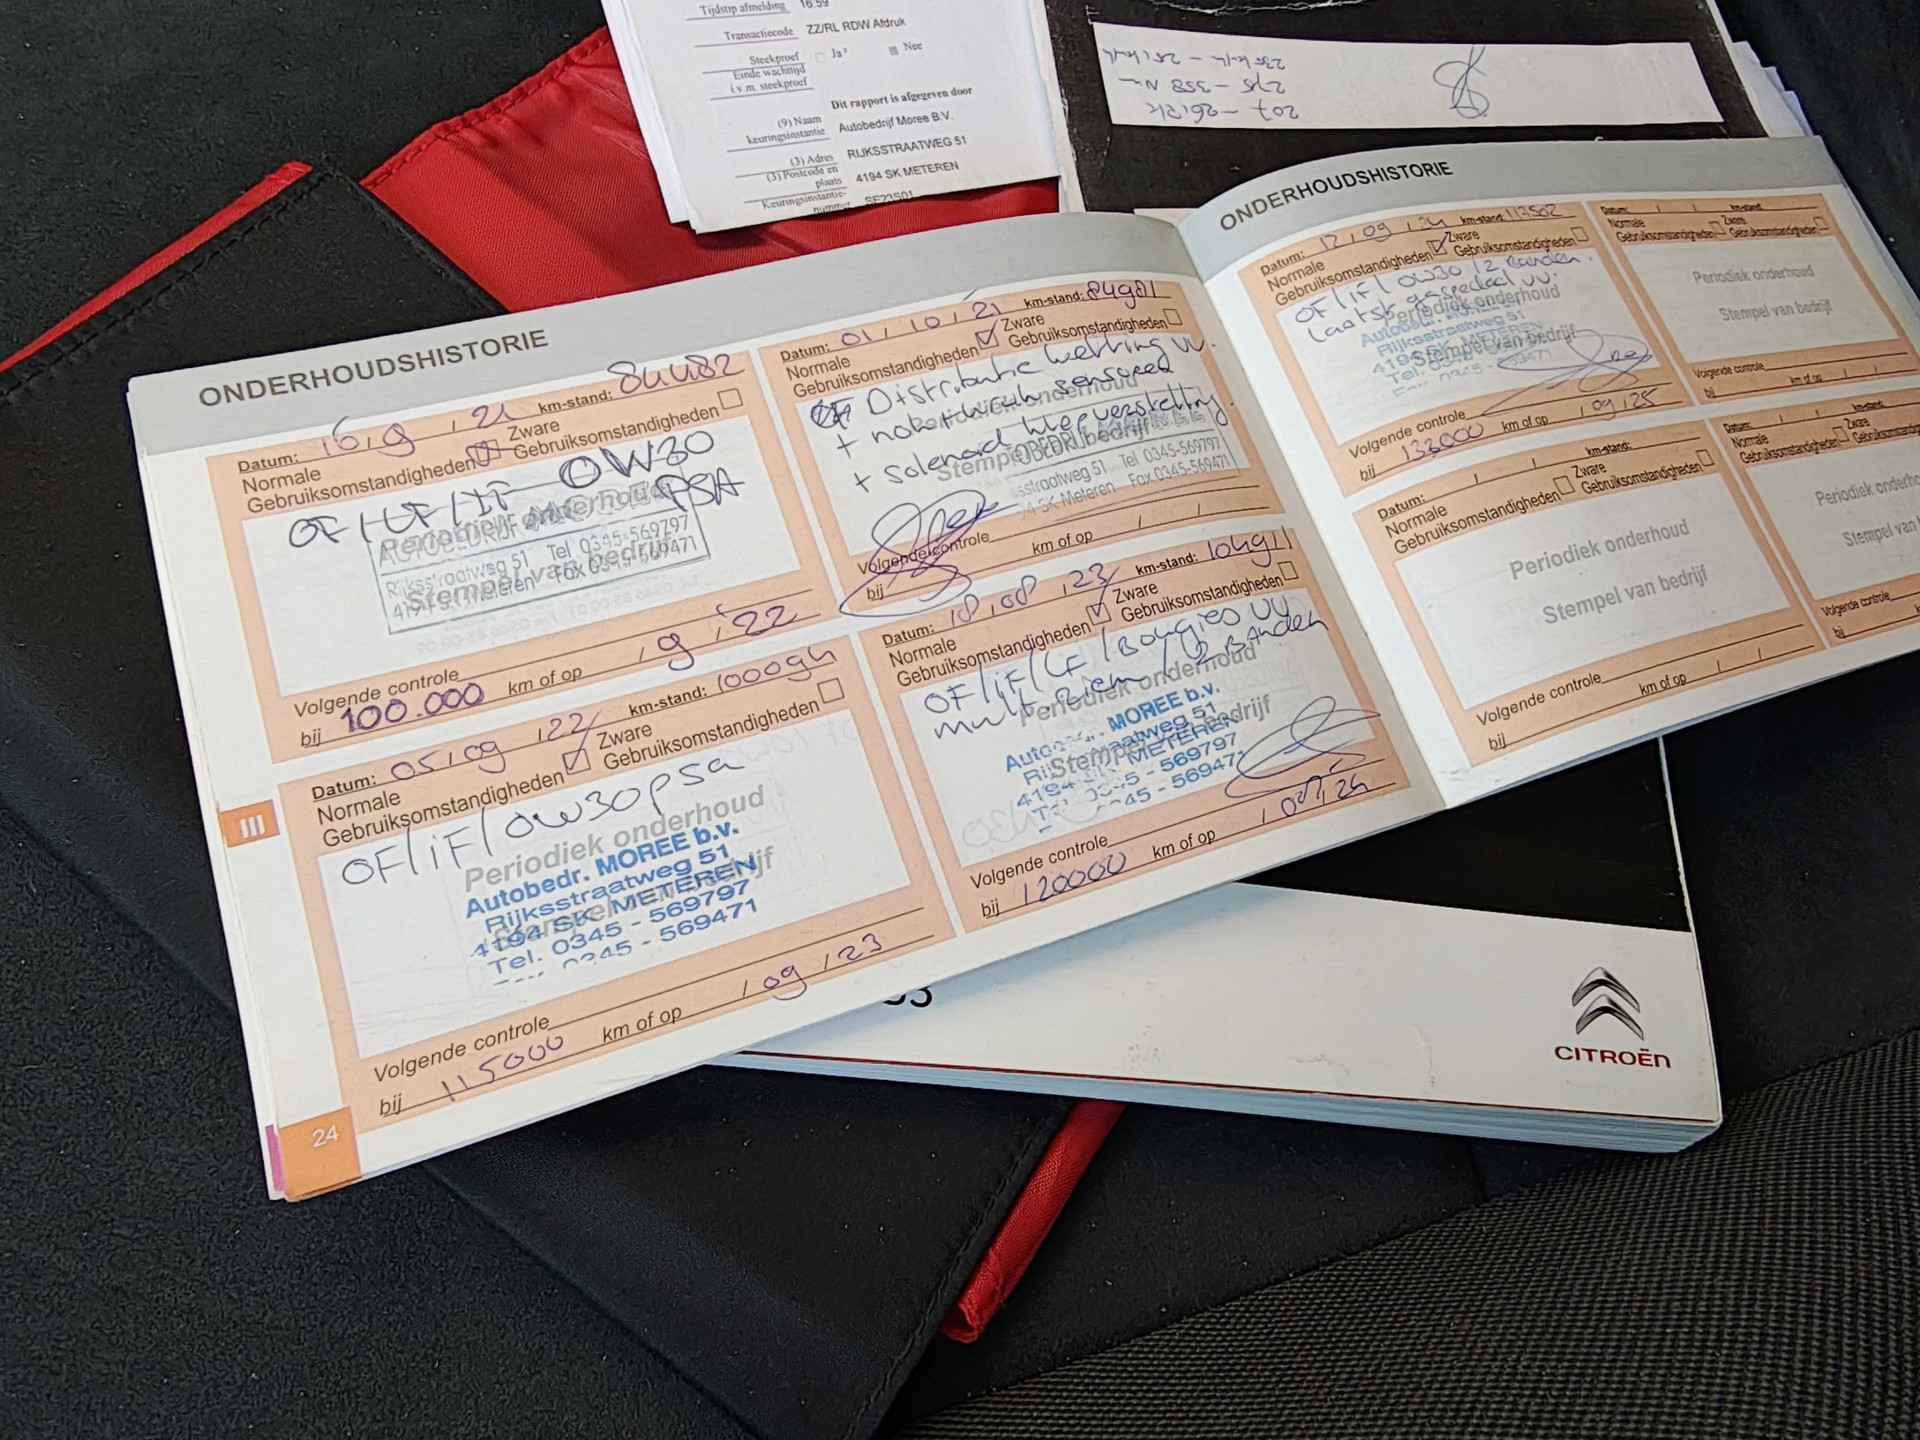 Tijdstip afmelding 16:59
Transactiecode ZZ/RL RDW Afdruk
Steekproef Ja³ Nee
Einde wachttijd
i.v.m. steekproef
Dit rapport is afgegeven door
(9) Naam
keuringsinstantie Autobedrijf Moree B.V.
(3) Adres RIJKSSTRAATWEG 51
(3) Postcode en
plaats 4194 SK METEREN
Keuringsinstantie-
nummer
207
275 - 358 Nm
ONDERHOUDSHISTORIE
Datum: 16, 9, 21 km-stand: 84482
Normale
Gebruiksomstandigheden
Zware
Gebruiksomstandigheden
OF / LF / IF 0W30
PSA
Periodiek onderhoud
Stempel van bedrijf
AUTOBEDRIJF
Rijksstraatweg 51 Tel 0345-569797
4194 SK Meteren Fax 0345-569471
Volgende controle
bij 100.000 km of op , 9 , 22
Datum: 01, 10, 21 km-stand: 84981
Normale
Gebruiksomstandigheden
Zware
Gebruiksomstandigheden
Distributie ketting vv.
+ nokkenas sensoren
+ solenoid klepverstelling.
Periodiek onderhoud
Stempel van bedrijf
Tel 0345-569797
SK Meteren Fax 0345-569471
Volgende controle
bij km of op
Datum: 05, 09, 22 km-stand: 100094
Normale
Gebruiksomstandigheden
Zware
Gebruiksomstandigheden
OF / iF / 0w30 psa
Periodiek onderhoud
Stempel van bedrijf
Autobedr. MOREE b.v.
Rijksstraatweg 51
4194 SK METEREN
Tel. 0345 - 569797
0345 - 569471
Volgende controle
bij 115000 km of op , 09 , 23
Datum: 18, 08, 23 km-stand: 104911
Normale
Gebruiksomstandigheden
Zware
Gebruiksomstandigheden
OF / iF / LF / Bougies vv
multi Riem 2 Banden
Periodiek onderhoud
Stempel van bedrijf
MOREE b.v.
METEREN
0345 - 569797
Volgende controle
bij 120000 km of op
III
24
ONDERHOUDSHISTORIE
Datum: 12, 09, 24 km-stand: 112502
Normale
Gebruiksomstandigheden
Zware
Gebruiksomstandigheden
OF / iF / 0W30 / 2 Banden.
Periodiek onderhoud
Stempel van bedrijf
Rijksstraatweg 51
Volgende controle
bij km of op , 09, 25
Datum: km-stand:
Normale
Gebruiksomstandigheden
Zware
Gebruiksomstandigheden
Periodiek onderhoud
Stempel van bedrijf
Volgende controle
bij km of op
Datum: km-stand:
Normale
Gebruiksomstandigheden
Zware
Gebruiksomstandigheden
Periodiek onderhoud
Stempel van bedrijf
Volgende controle
bij km of op
Datum:
Normale
Gebruiksomstandigheden
Zware
Periodiek
Stempel van
Volgende controle
bij
CITROËN